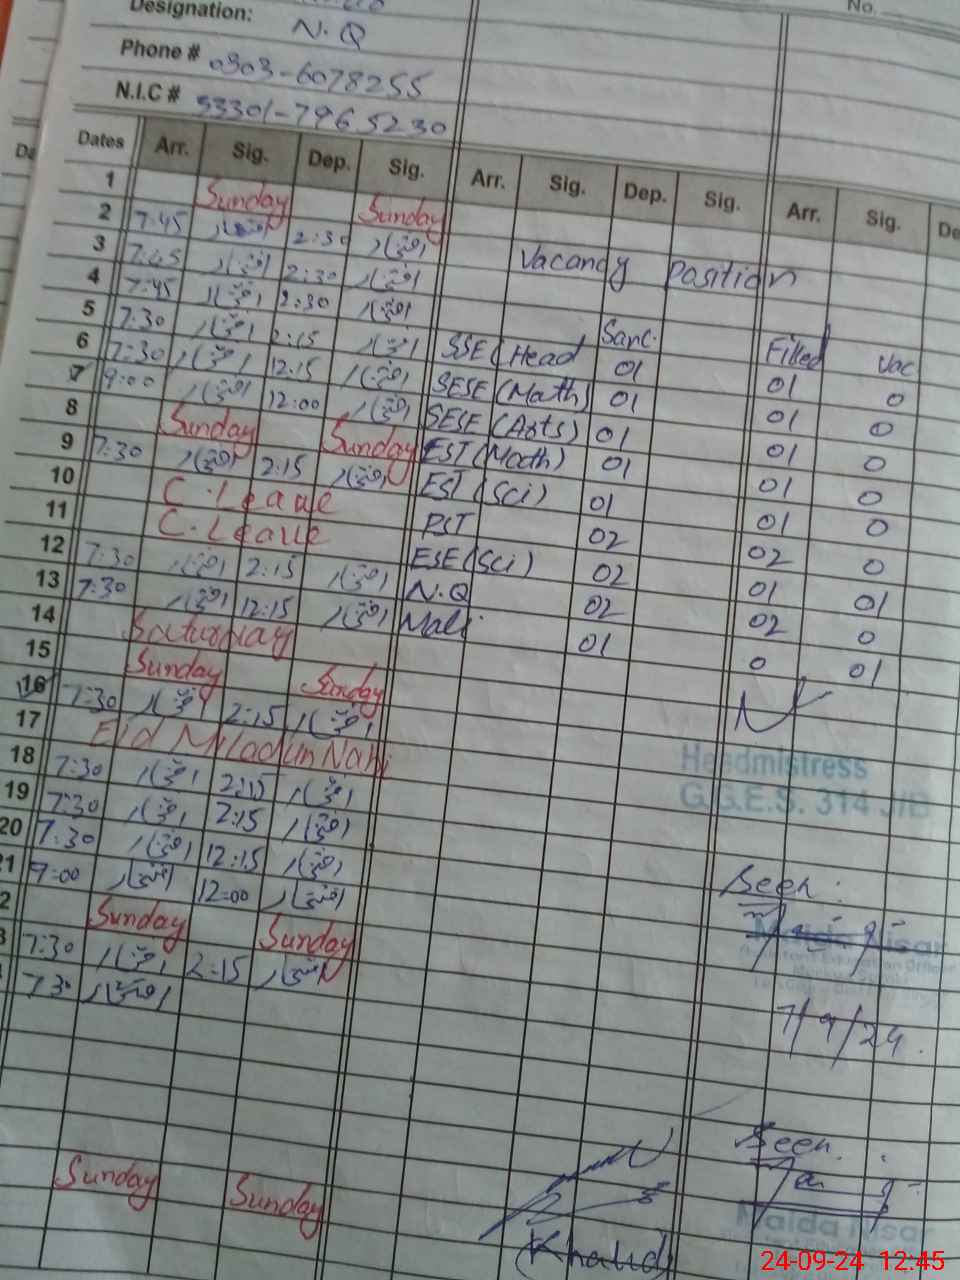 No.
Designation:
N.Q
Phone # 0303-6078255
N.I.C # 33301-7965230
Dates Arr. Sig. Dep. Sig. Arr. Sig. Dep. Sig. Arr. Sig. De
1 Sunday Sunday
2 7:45 2:30
3 7:45 2:30 Vacancy Position
4 7:45 2:30
5 7:30 2:15 Sanc. Filled Vac
6 7:30 12:15 SSE (Head 01 01 0
7 9:00 12:00 SESE (Math) 01 01 0
8 Sunday Sunday SESE (Arts) 01 01 0
9 7:30 2:15 EST (Math) 01 01 0
10 C. Leave EST (Sci) 01 01 0
11 C. Leave PST 02 02 0
12 7:30 2:15 ESE (Sci) 02 01 01
13 7:30 12:15 N.Q 02 02 0
14 Saturday Mali 01 0 01
15 Sunday Sunday
16 7:30 2:15
17 Eid Miladun Nabi
18 7:30 2:15
Headmistress
G.G.E.S. 314 J/B
19 7:30 2:15
20 7:30 12:15
1 9:00 12:00
Seen:
2 Sunday Sunday
3 7:30 2:15
Maida Nisar
7:30
7/9/24
Seen.
Sunday Sunday
Maida Nisar
(Khalid)
24-09-24 12:45